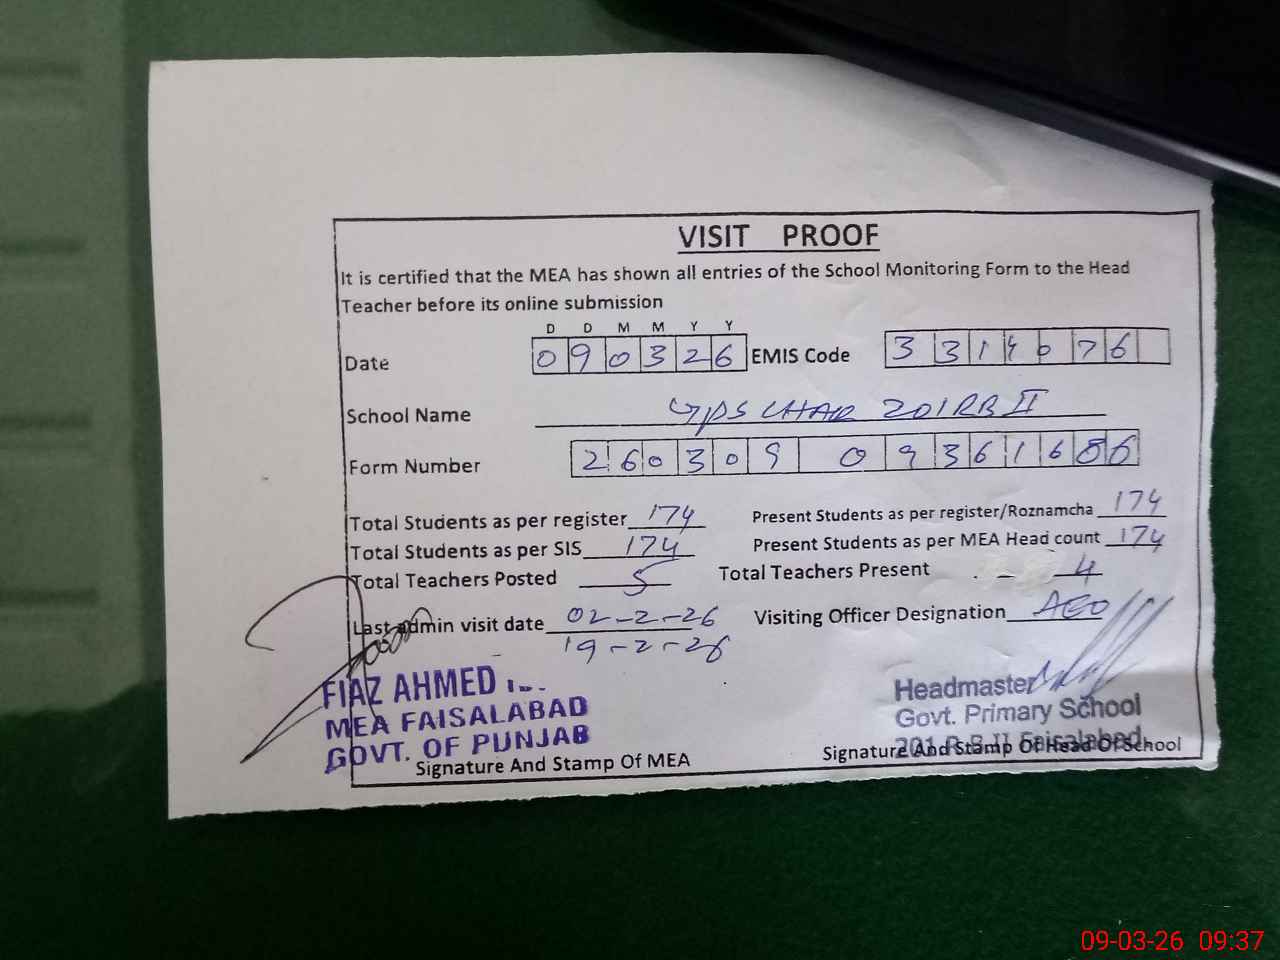 VISIT PROOF
It is certified that the MEA has shown all entries of the School Monitoring Form to the Head
Teacher before its online submission
D D M M Y Y
Date 0 9 0 3 2 6 EMIS Code 3 3 1 4 0 7 6
School Name GPS CHAK 201 RB II
Form Number 2 6 0 3 0 9 0 9 3 6 1 6 8 6
Total Students as per register 174 Present Students as per register/Roznamcha 174
Total Students as per SIS 174 Present Students as per MEA Head count 174
Total Teachers Posted 5 Total Teachers Present 4
Last admin visit date 02-2-26 Visiting Officer Designation AEO
19-2-26
FIAZ AHMED
MEA FAISALABAD
GOVT. OF PUNJAB
Signature And Stamp Of MEA
Headmaster
Govt. Primary School
201 R.B II Faisalabad
Signature And Stamp Of Head Of School
09-03-26 09:37